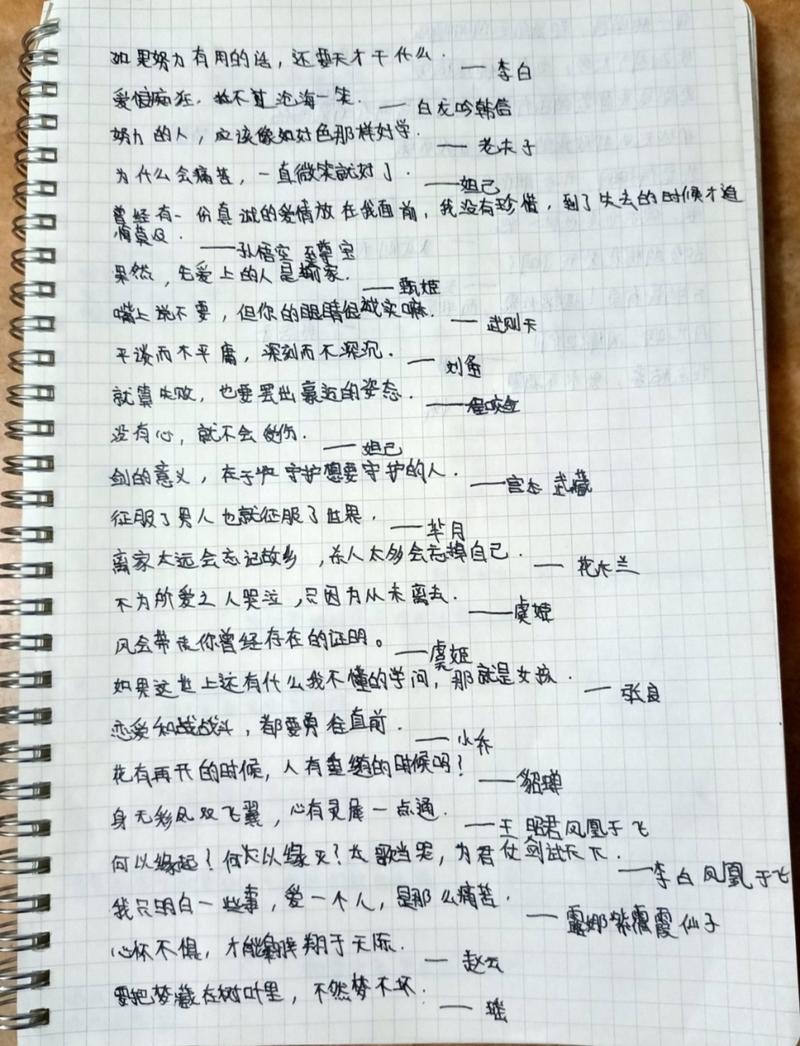 如果努力有用的话，还要天才干什么. ——李白
爱恨痴狂，敌不过沧海一笑. ——白龙吟韩信
努力的人，应该像好好色那样好学. ——老夫子
为什么会痛苦，一直微笑就好了. ——妲己
曾经有一份真诚的爱情放在我面前，我没有珍惜，到了失去的时候才追
悔莫及. ——孙悟空 至尊宝
果然，先爱上的人是输家. ——甄姬
嘴上说不要，但你的眼睛很诚实嘛. ——武则天
平淡而不平庸，深刻而不深沉. ——刘
就算失败，也要摆出豪迈的姿态. ——程咬金
没有心，就不会受伤. ——妲己
剑的意义，在于守护想要守护的人. ——宫本 武藏
征服了男人也就征服了世界. ——芈月
离家太远会忘记故乡，杀人太多会忘掉自己. ——花木兰
不为所爱之人哭泣，只因为从未离去. ——虞姬
风会带走你曾经存在的证明。——虞姬
如果这世上还有什么我不懂的学问，那就是女孩. ——张良
恋爱和战战斗，都要勇往直前. ——小乔
花有再开的时候，人有重逢的时候吗? ——貂蝉
身无彩凤双飞翼，心有灵犀一点通. ——王昭君凤凰于飞
何以缘起?何以缘灭?长歌当哭，为君仗剑试天下. ——李白 凤凰于飞
我只明白一些事，爱一个人，是那么痛苦. ——露娜紫霞仙子
心怀不惧，才能翱翔于天际. ——赵云
要把梦藏在树叶里，不然梦不坏. ——瑶